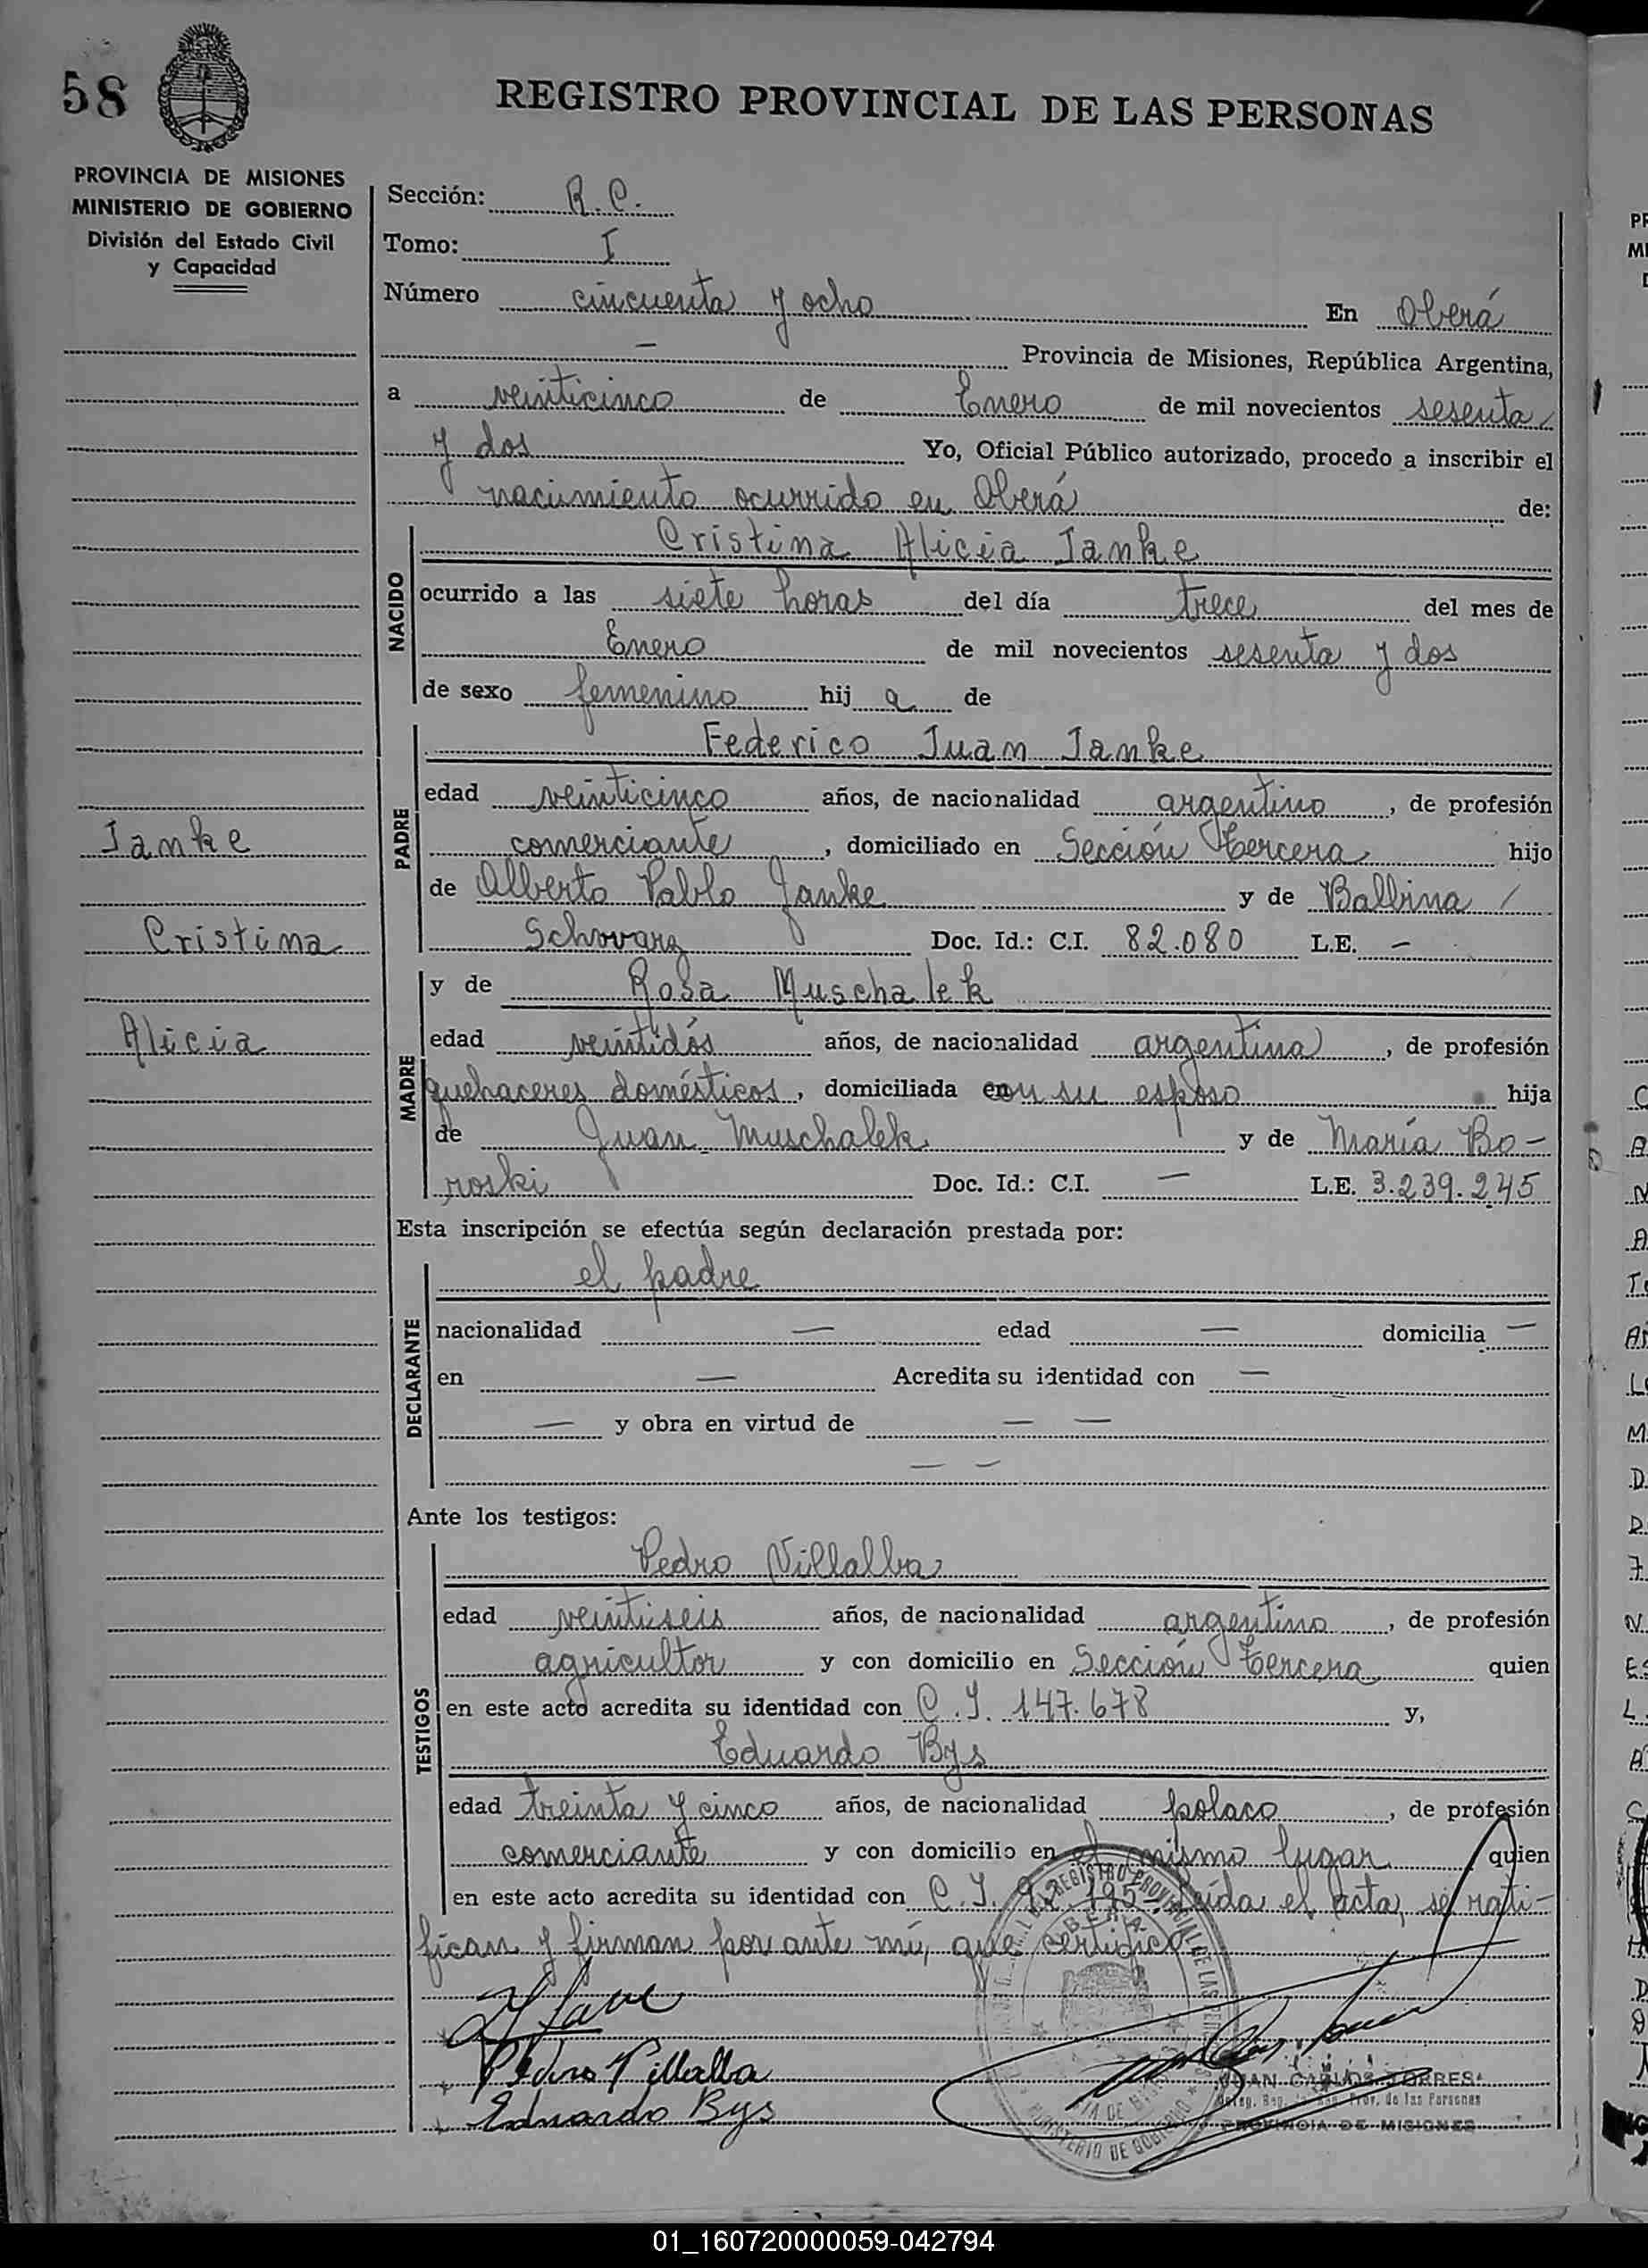 58
REGISTRO PROVINCIAL DE LAS PERSONAS
PROVINCIA DE MISIONES
MINISTERIO DE GOBIERNO
División del Estado Civil
y Capacidad
Sección: R. C.
Tomo: I
Número cincuenta y ocho En Oberá
— Provincia de Misiones, República Argentina,
a veinticinco de Enero de mil novecientos sesenta
y dos Yo, Oficial Público autorizado, procedo a inscribir el
nacimiento ocurrido en Oberá de:
NACIDO
Cristina Alicia Janke
ocurrido a las siete horas del día trece del mes de
Enero de mil novecientos sesenta y dos
de sexo femenino hij a de
PADRE
Federico Juan Janke
edad veinticinco años, de nacionalidad argentino, de profesión
comerciante, domiciliado en Sección Tercera hijo
de Alberto Pablo Janke y de Balbina
Schwarz Doc. Id.: C.I. 82.080 L.E. —
Janke
Cristina
Alicia
MADRE
y de Rosa Muschalek
edad veintidós años, de nacionalidad argentina, de profesión
quehaceres domésticos, domiciliada con su esposo hija
de Juan Muschalek y de María Bo-
roski Doc. Id.: C.I. — L.E. 3.239.245
Esta inscripción se efectúa según declaración prestada por:
DECLARANTE
el padre
nacionalidad — edad — domicilia —
en — Acredita su identidad con —
— y obra en virtud de — —
— —
Ante los testigos:
TESTIGOS
Pedro Villalba
edad veintiseis años, de nacionalidad argentino, de profesión
agricultor y con domicilio en Sección Tercera quien
en este acto acredita su identidad con C. I. 147.678 y,
Eduardo Bys
edad treinta y cinco años, de nacionalidad polaco, de profesión
comerciante y con domicilio en el mismo lugar quien
en este acto acredita su identidad con C. I. Leída el acta, se rati-
fican y firman por ante mí, que certifico
Pedro Villalba
Eduardo Bys
JUAN CARLOS TORRES
Prov. de las Personas
PROVINCIA DE MISIONES
01_160720000059-042794